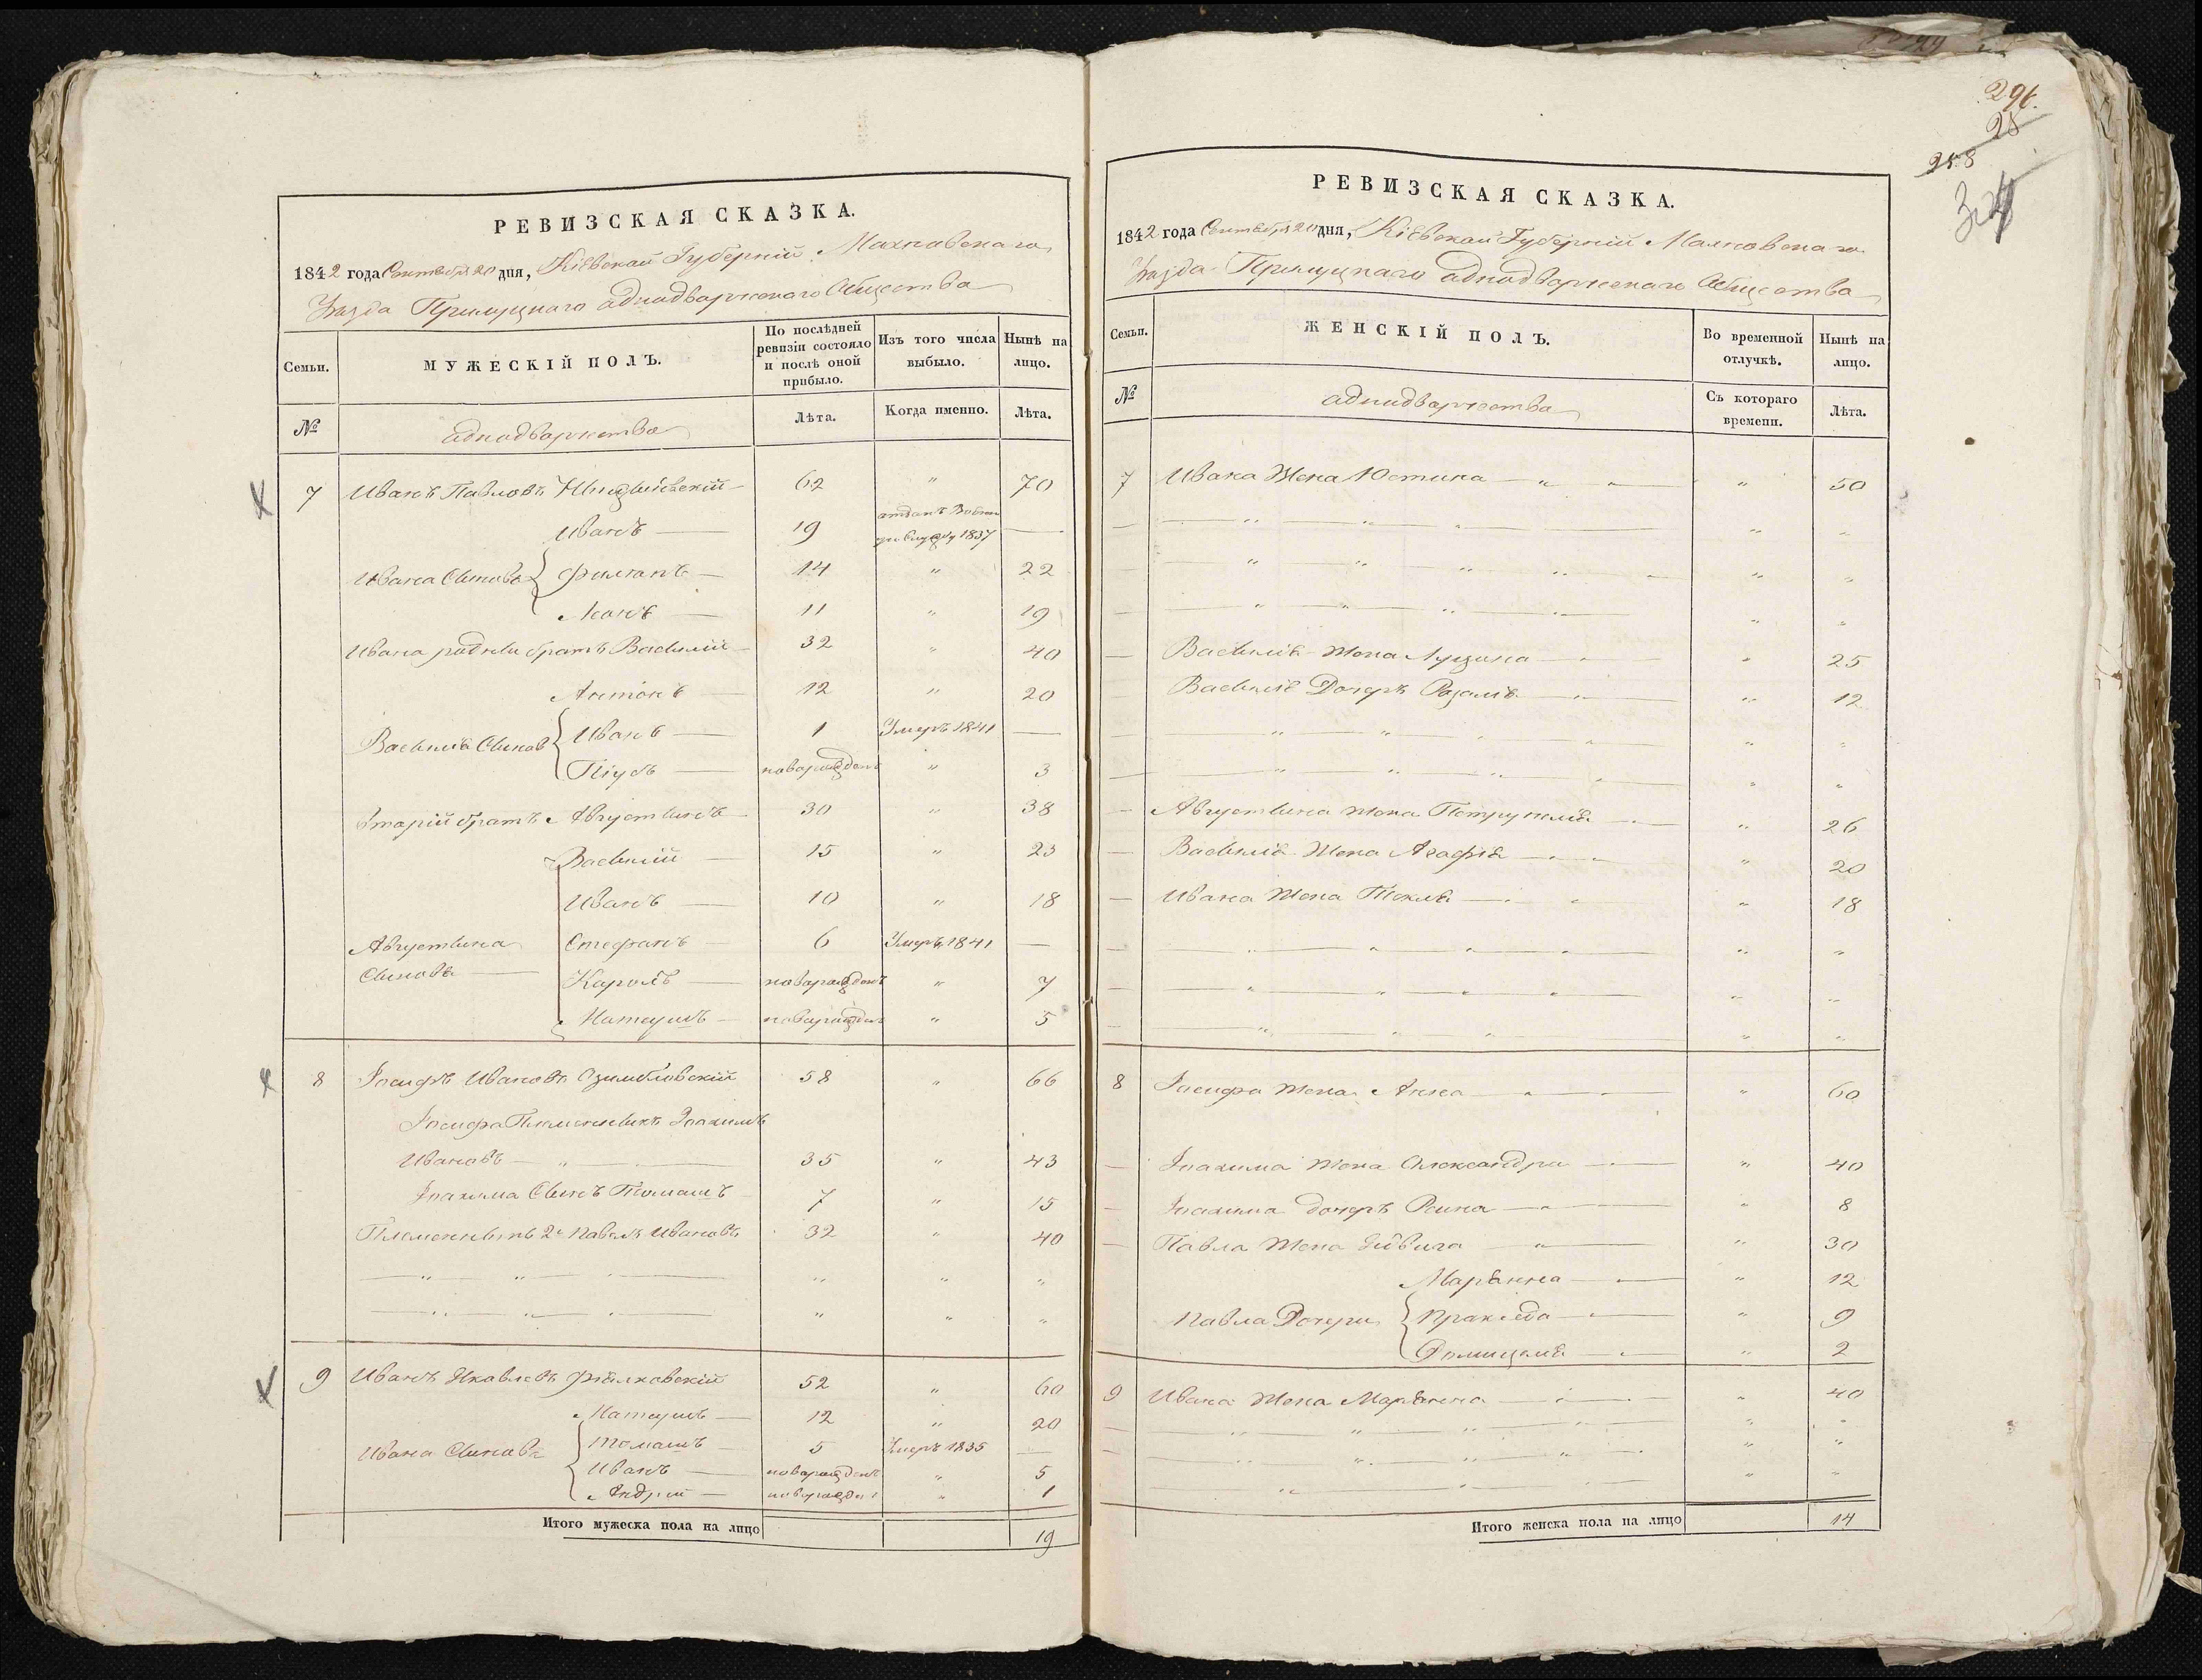 РЕВИЗСКАЯ СКАЗКА.
1842 года Сентября 20 дня, Кіевской Губерніи Махновскаго
Уезда Прилуцкаго аднодворческаго Общества
Семьи.
МУЖЕСКІЙ ПОЛЪ.
По послѣдней ревизіи состояло и послѣ оной прибыло.
Изъ того числа выбыло.
Нынѣ на лицо.
№
аднодворчества
Лѣта.
Когда именно.
Лѣта.
7 Иванъ Павловъ 62 " 70
Иванъ 19 1837
Ивана Синовя 14 " 22
11 " 19
Ивана родни братъ Василий 32 " 40
Антонъ 12 " 20
Василия Синов Иванъ 1 Умеръ 1841
новорожденъ " 3
братъ Августинъ 30 " 38
Василий 15 " 23
Иванъ 10 " 18
Августина Стефанъ 6 Умеръ 1841
Синовя Кароль новорожденъ " 7
Матеушъ новорожден " 5
8 Іосифъ Ивановъ 58 " 66
Іосифа Племенникъ Іоахимъ
Ивановъ 35 " 43
Іоахима Синъ Томашъ 7 " 15
Племенникъ 2й Павелъ Ивановъ 32 " 40
9 Иванъ Яковлевъ Фіялковскій 52 " 60
Матеушъ 12 " 20
Ивана Синовя Томашъ 5 Умеръ 1835
Иванъ новорожденъ " 5
Андрей новорожден " 1
Итого мужеска пола на лицо 19
296.
28
258
РЕВИЗСКАЯ СКАЗКА.
1842 года Сентября 20 дня, Кіевской Губерніи Махновскаго
Уезда Прилуцкаго аднодворческаго Общества
Семьи.
ЖЕНСКІЙ ПОЛЪ.
Во временной отлучкѣ.
Нынѣ на лицо.
№
аднодворчества
Съ котораго времени.
Лѣта.
7 Ивана Жена Юстина " 50
Василія Жена Луцина " 25
Василія Дочерь Розалія " 12
Августина жена Петрунеля " 26
Василія Жена Агафія " 20
Ивана Жена Текля " 18
8 Іосифа жена Анна " 60
Іоахима жена Александра " 40
Іоахима дочерь " 8
Павла жена " 30
Марянна " 12
Павла Дочери Пракседа " 9
Фелицеля " 2
9 Ивана жена Марянна " 40
Итого женска пола на лицо 14